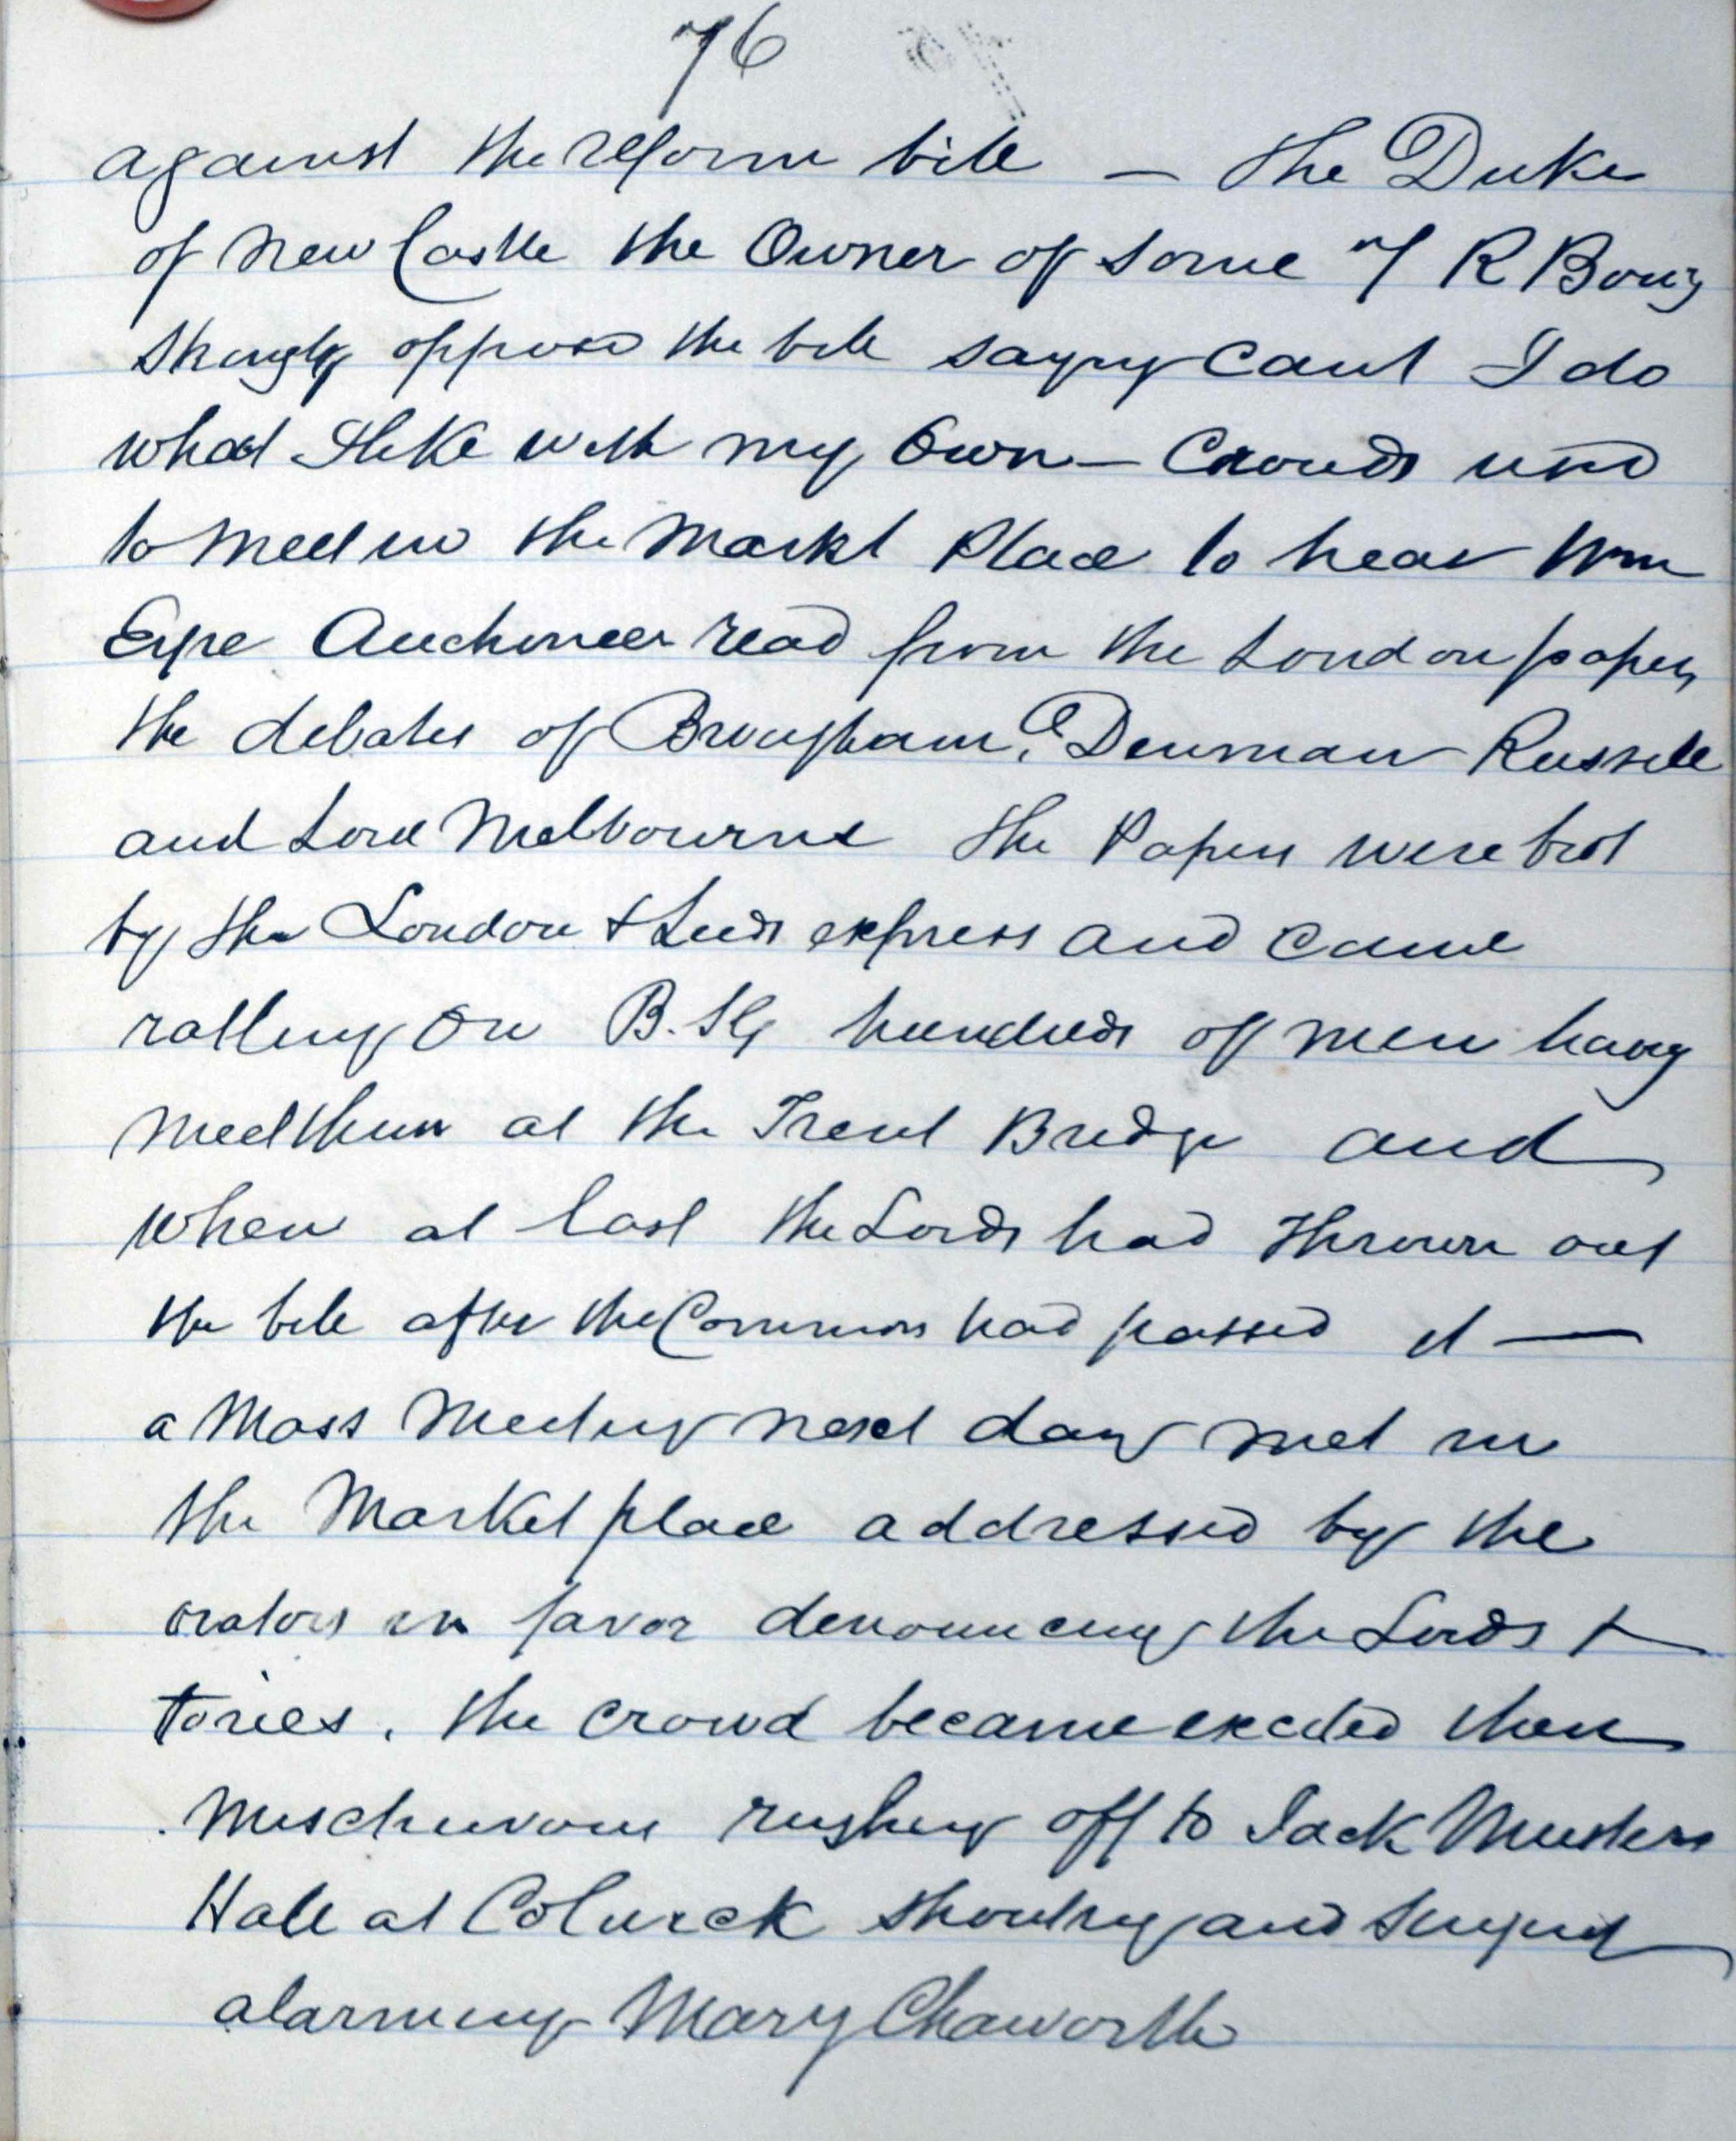 76
against the reform bill — the Duke
of New Castle the Owner of some of R Borıg
strongly opposed the bill saying cant I do
what I like with my Own — Crowds used
to meet in the Markt Place to hear Wm
Eyre Auctioneer read from the London papers
the debates of Brougham, Denman Russell
and Lord Melbourne the Papers were brot
by the London & Leeds express and came
rattling on B. St hundreds of men havg
meet them at the Trent Bridge and
when at last the Lords had thrown out
the bill after the Commons had passed it —
a Mass Meeting next day met in
the Market place addressed by the
orators in favor denouncing the Lords &
tories. the crowd became excited then
mischievous rushing off to Jack Musters
Hall at Colwick shouting and singing
alarming Mary Chaworth